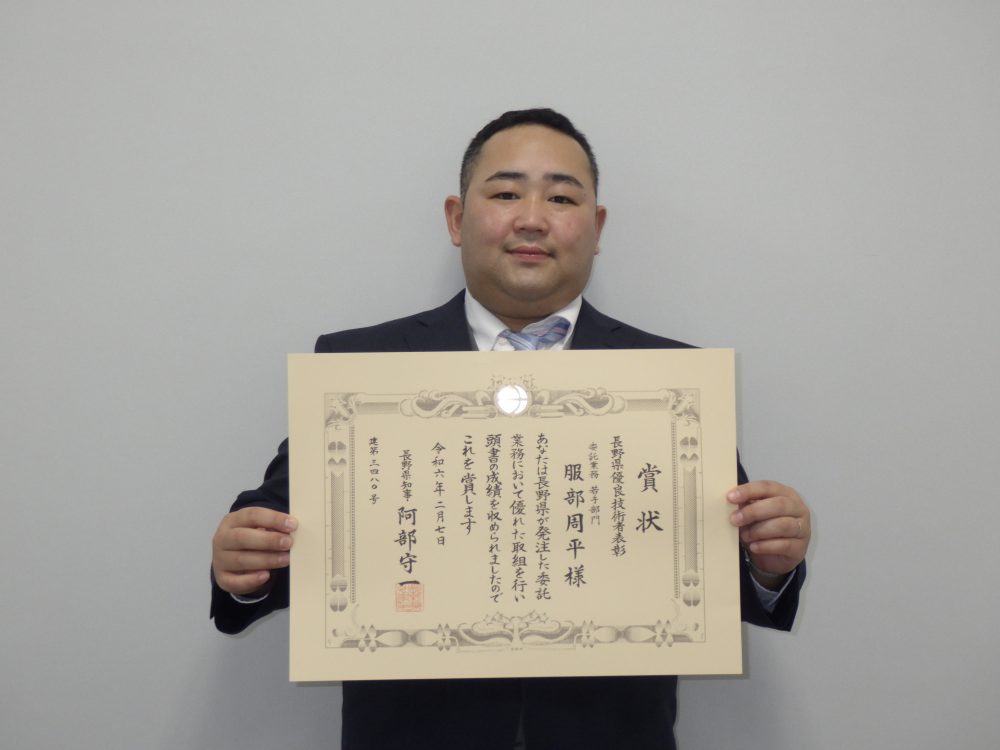 賞状
長野県優良技術者表彰
委託業務 若手部門
服部周平様
あなたは長野県が発注した委託
業務において優れた取組を行い
頭書の成績を収められましたので
これを賞します
令和六年二月七日
長野県知事 阿部守一
建第三四八〇号